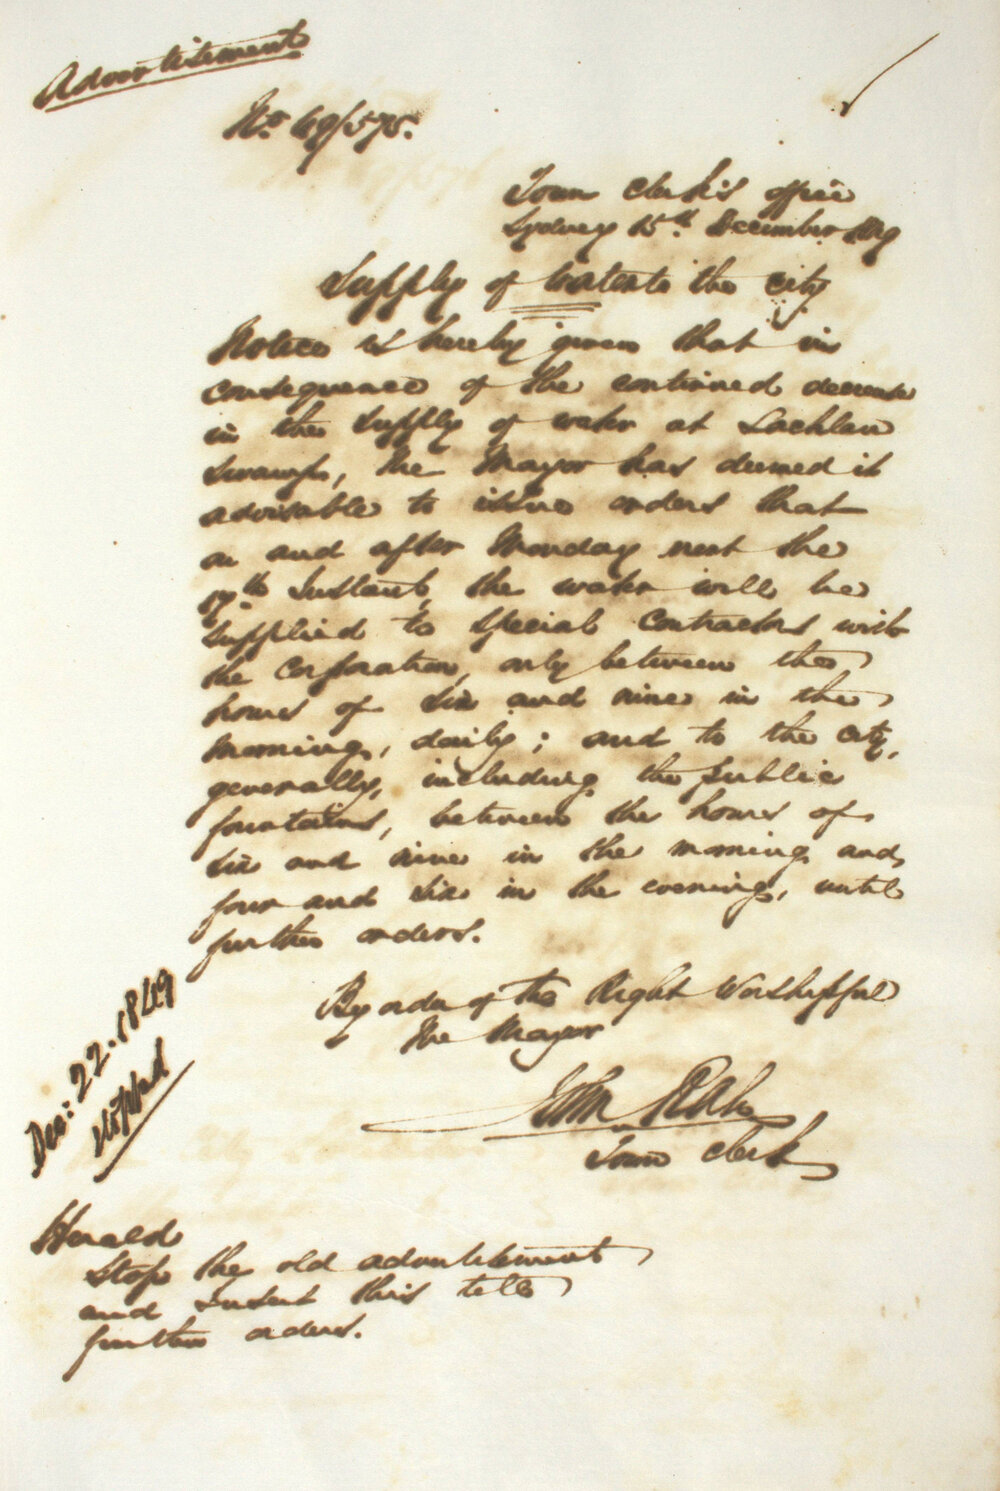 Advertisement
No. 49/575.
Town Clerk's Office
Sydney 15th December 1849
Supply of Water to the City
Notice is hereby given that in
consequence of the continued decrease
in the supply of water at Lachlan
Swamp, the Mayor has deemed it
advisable to issue orders that
on and after Monday next the
17th Instant, the water will be
supplied to special contractors with
the Corporation, only between the
hours of six and nine in the
morning, daily; and to the City,
generally, including the public
fountains, between the hours of
six and nine in the morning and,
four and six in the evening, until
further orders.
By order of the Right Worshipful
The Mayor
John Rae
Town Clerk
Dec: 22. 1849
stopped
Herald
Stop the old advertisement
and insert this till
further orders.